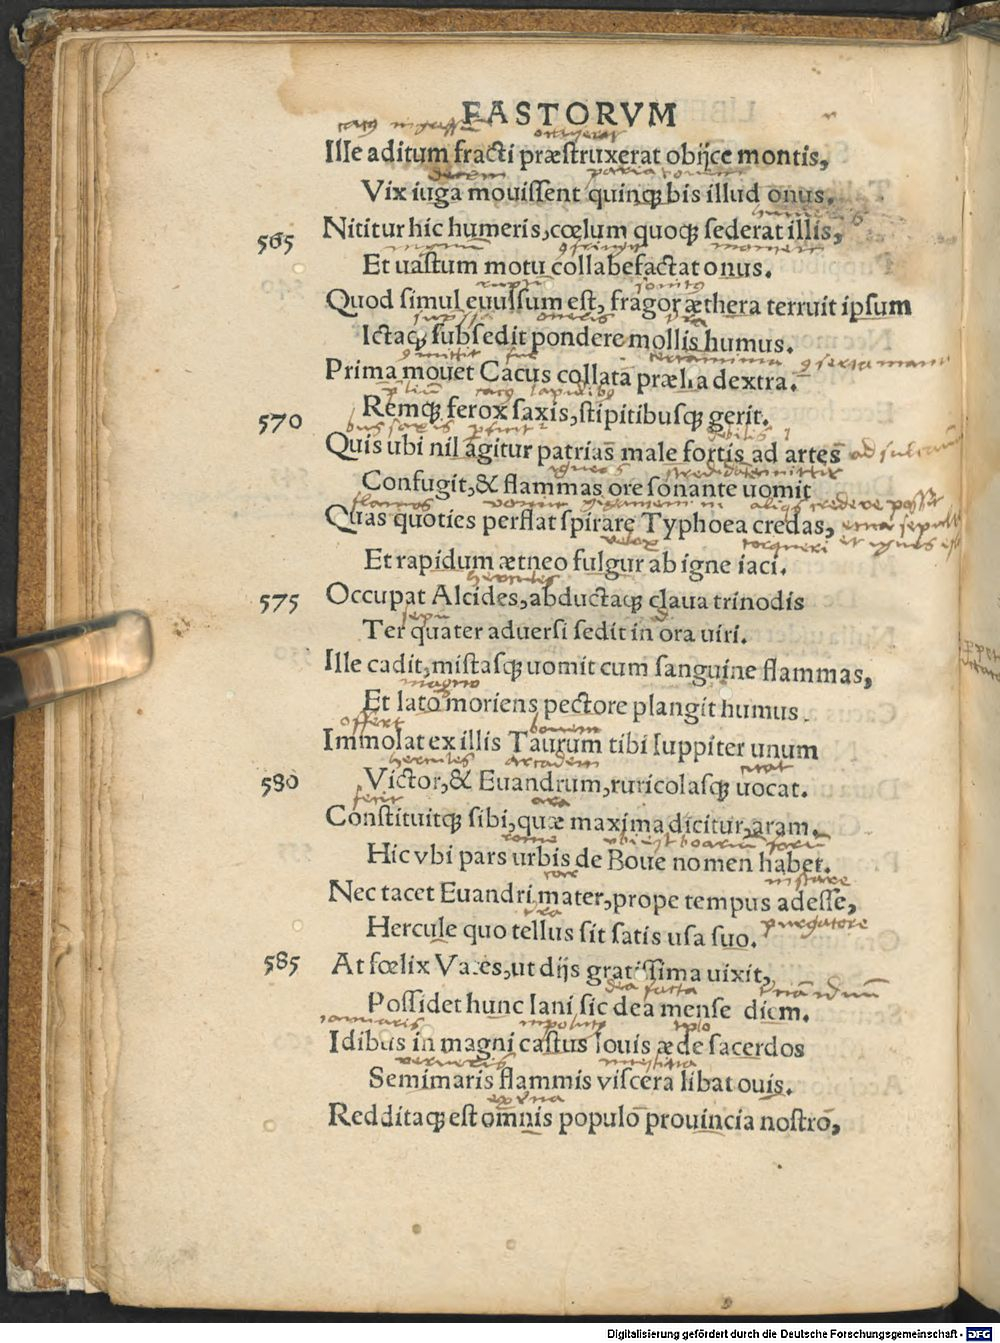 FASTORVM
cacus ingressum
Ille aditum fracti præstruxerat obijce montis,
decem paria boum
Vix iuga mouissent quinqȝ bis illud onus.
humeris
Nititur hic humeris, cœlum quoqȝ sederat illis,
565
Et uastum motu collabefactat onus.
sonitus
Quod simul euulsum est, fragor æthera terruit ipsum
oneris
Ictaqȝ subsedit pondere mollis humus.
Prima mouet Cacus collata prælia dextra.
cacus lapidibus
Remqȝ ferox saxis, stipitibusqȝ gerit.
570
debilis
Quis ubi nil agitur patrias male fortis ad artes
igneos
Confugit, & flammas ore sonante uomit
flammas
Quas quoties perflat spirare Typhoea credas,
velox torqueri
Et rapidum ætneo fulgur ab igne iaci.
hercules
575 Occupat Alcides, abductaqȝ claua trinodis
Ter quater aduersi sedit in ora uiri.
Ille cadit, mistasqȝ uomit cum sanguine flammas,
magno
Et lato moriens pectore plangit humus.
offert bouem
Immolat ex illis Taurum tibi Iuppiter unum
hercules arcadem
580 Victor, & Euandrum, ruricolasqȝ uocat.
fecit ara
Constituitqȝ sibi, quæ maxima dicitur, aram.
rome ubi est boarium forum
Hic vbi pars urbis de Boue nomen habet.
instare
Nec tacet Euandri mater, prope tempus adesse,
Hercule quo tellus sit satis usa suo.
585 At fœlix Vates, ut dijs gratissima uixit,
dea facta
Possidet hunc Iani sic dea mense diem.
ianuarii
Idibus in magni castus Iouis æde sacerdos
Semimaris flammis viscera libat ouis.
Redditaqȝ est omnis populo prouincia nostro,
Digitalisierung gefördert durch die Deutsche Forschungsgemeinschaft - DFG